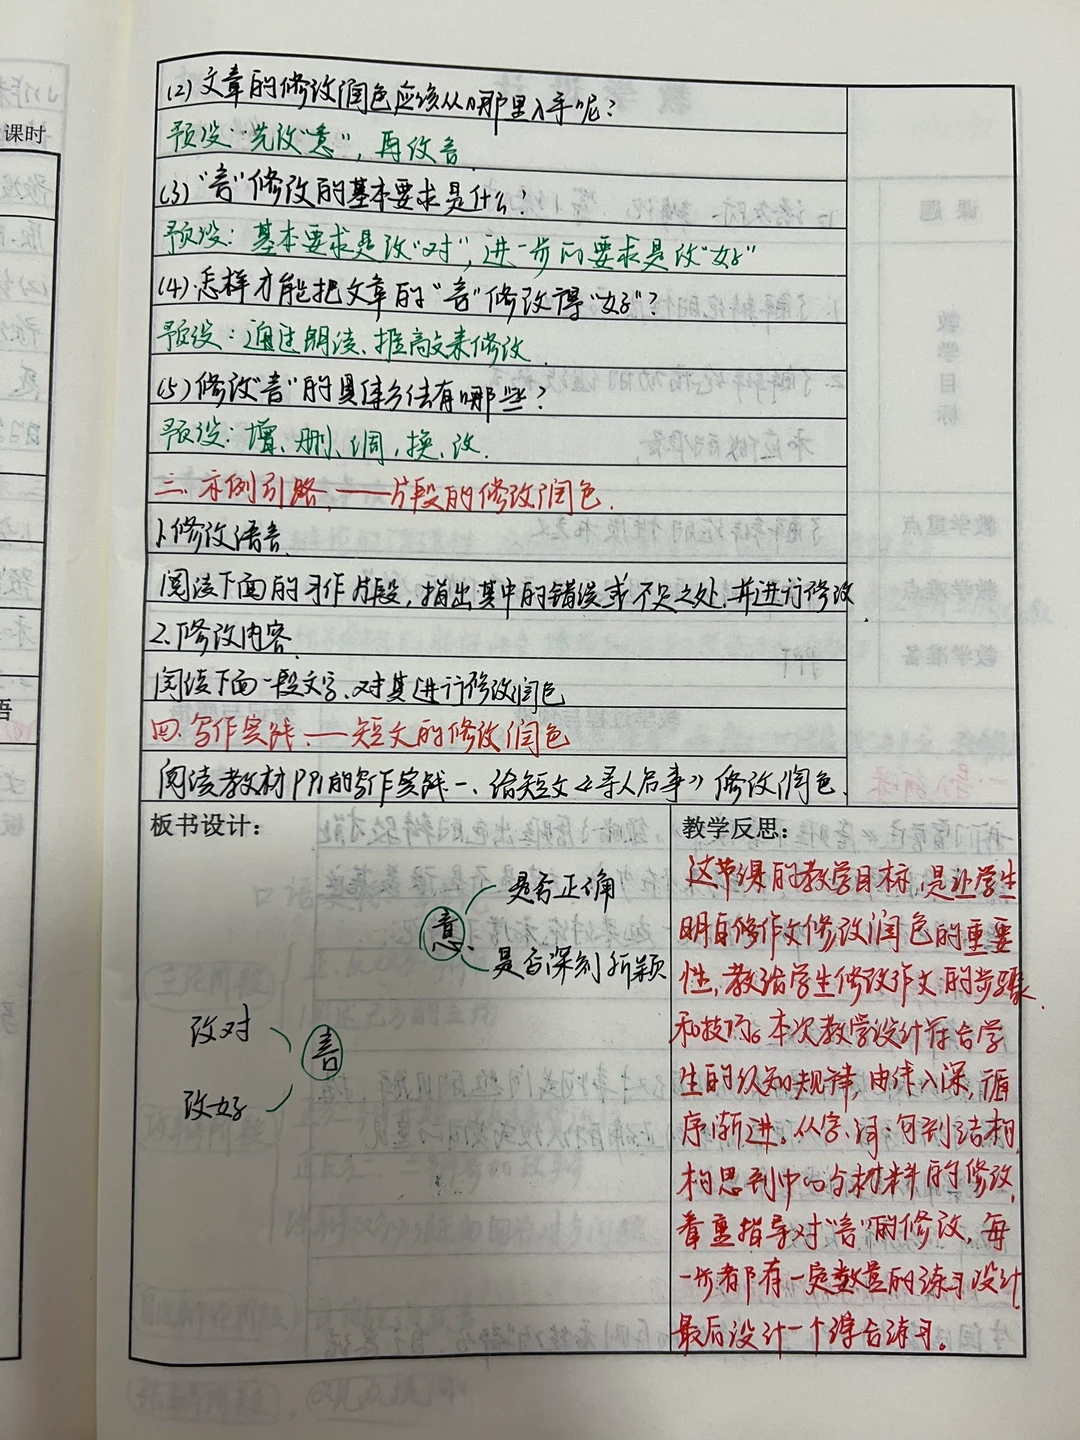 (2) 文章的修改润色应该从哪里入手呢？
预设：先改“意”，再改言
(3) “言”修改的基本要求是什么？
预设：基本要求是改“对”，进一步的要求是改“好”
(4) 怎样才能把文章的“言”修改得“好”？
预设：通过朗读、推敲文来修改
(5) 修改“言”的具体方法有哪些？
预设：增、删、调，换、改.
三、示例引路，——片段的修改润色.
1.修改语言.
阅读下面的习作片段，指出其中的错误或不足之处，并进行修改.
2.修改内容.
阅读下面一段文字、对其进行修改润色
四、写作实践、——短文的修改润色
阅读教材P91的写作实践一、给短文《寻人启事》修改润色.
板书设计：
是否正确
意
是否深刻新颖
改对
言
改好
教学反思：
这节课的教学目标，是让学生
明白修作文修改润色的重要
性，教给学生修改作文的步骤
和技巧。本次教学设计符合学
生的认知规律，由浅入深，循
序渐进。从字、词、句到结构，
构思到中心与材料的修改，
着重指导对“言”的修改，每
一步都有一定数量的练习设计
最后设计一个综合练习。
课时